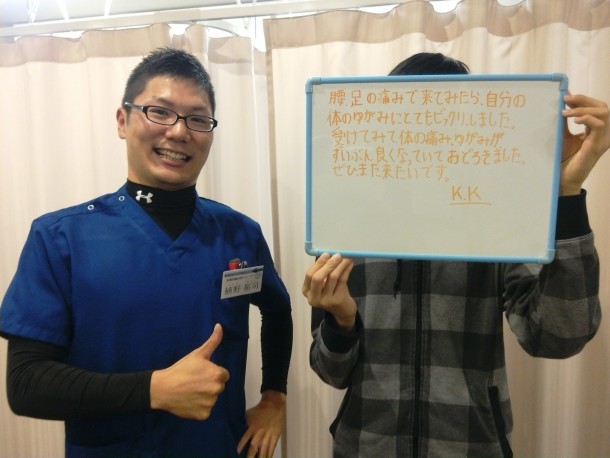 腰、足の痛みで来てみたら、自分の
体のゆがみにとてもビックリしました。
受けてみて体の痛み、ゆがみが
ずいぶん良くなっていておどろきました。
ぜひまた来たいです。
K.K